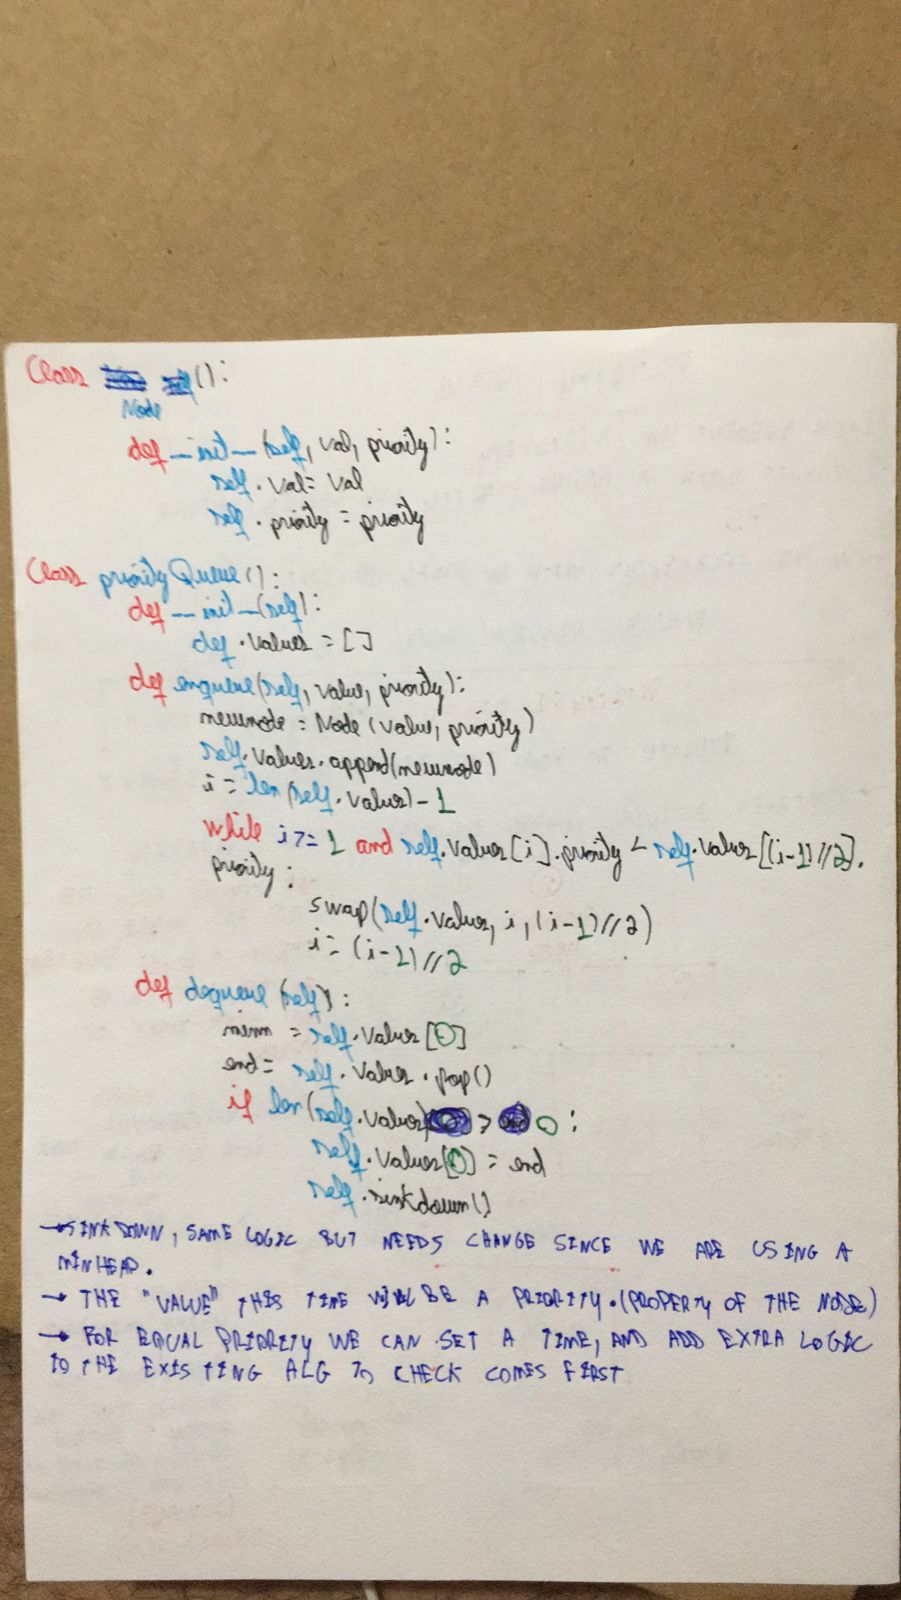 Class ():
Node
def __init__(self, val, priority):
self.val = val
self.priority = priority
Class priorityQueue():
def __init__(self):
def.values = []
def enqueue(self, value, priority):
newnode = Node(value, priority)
self.values.append(newnode)
i = len(self.values)-1
while i>=1 and self.values[i].priority < self.values[(i-1)//2].
priority:
swap(self.values, i, (i-1)//2)
i = (i-1)//2
def dequeue(self):
minn = self.values[0]
end = self.values.pop()
if len(self.values) > 0:
self.values[0] = end
self.sinkdown()
→ SINKDOWN, SAME LOGIC BUT NEEDS CHANGE SINCE WE ARE USING A
MINHEAP.
→ THE "VALUE" THIS TIME WILL BE A PRIORITY.(PROPERTY OF THE NODE)
→ FOR EQUAL PRIORITY WE CAN SET A TIME, AND ADD EXTRA LOGIC
TO THE EXISTING ALG TO CHECK COMES FIRST